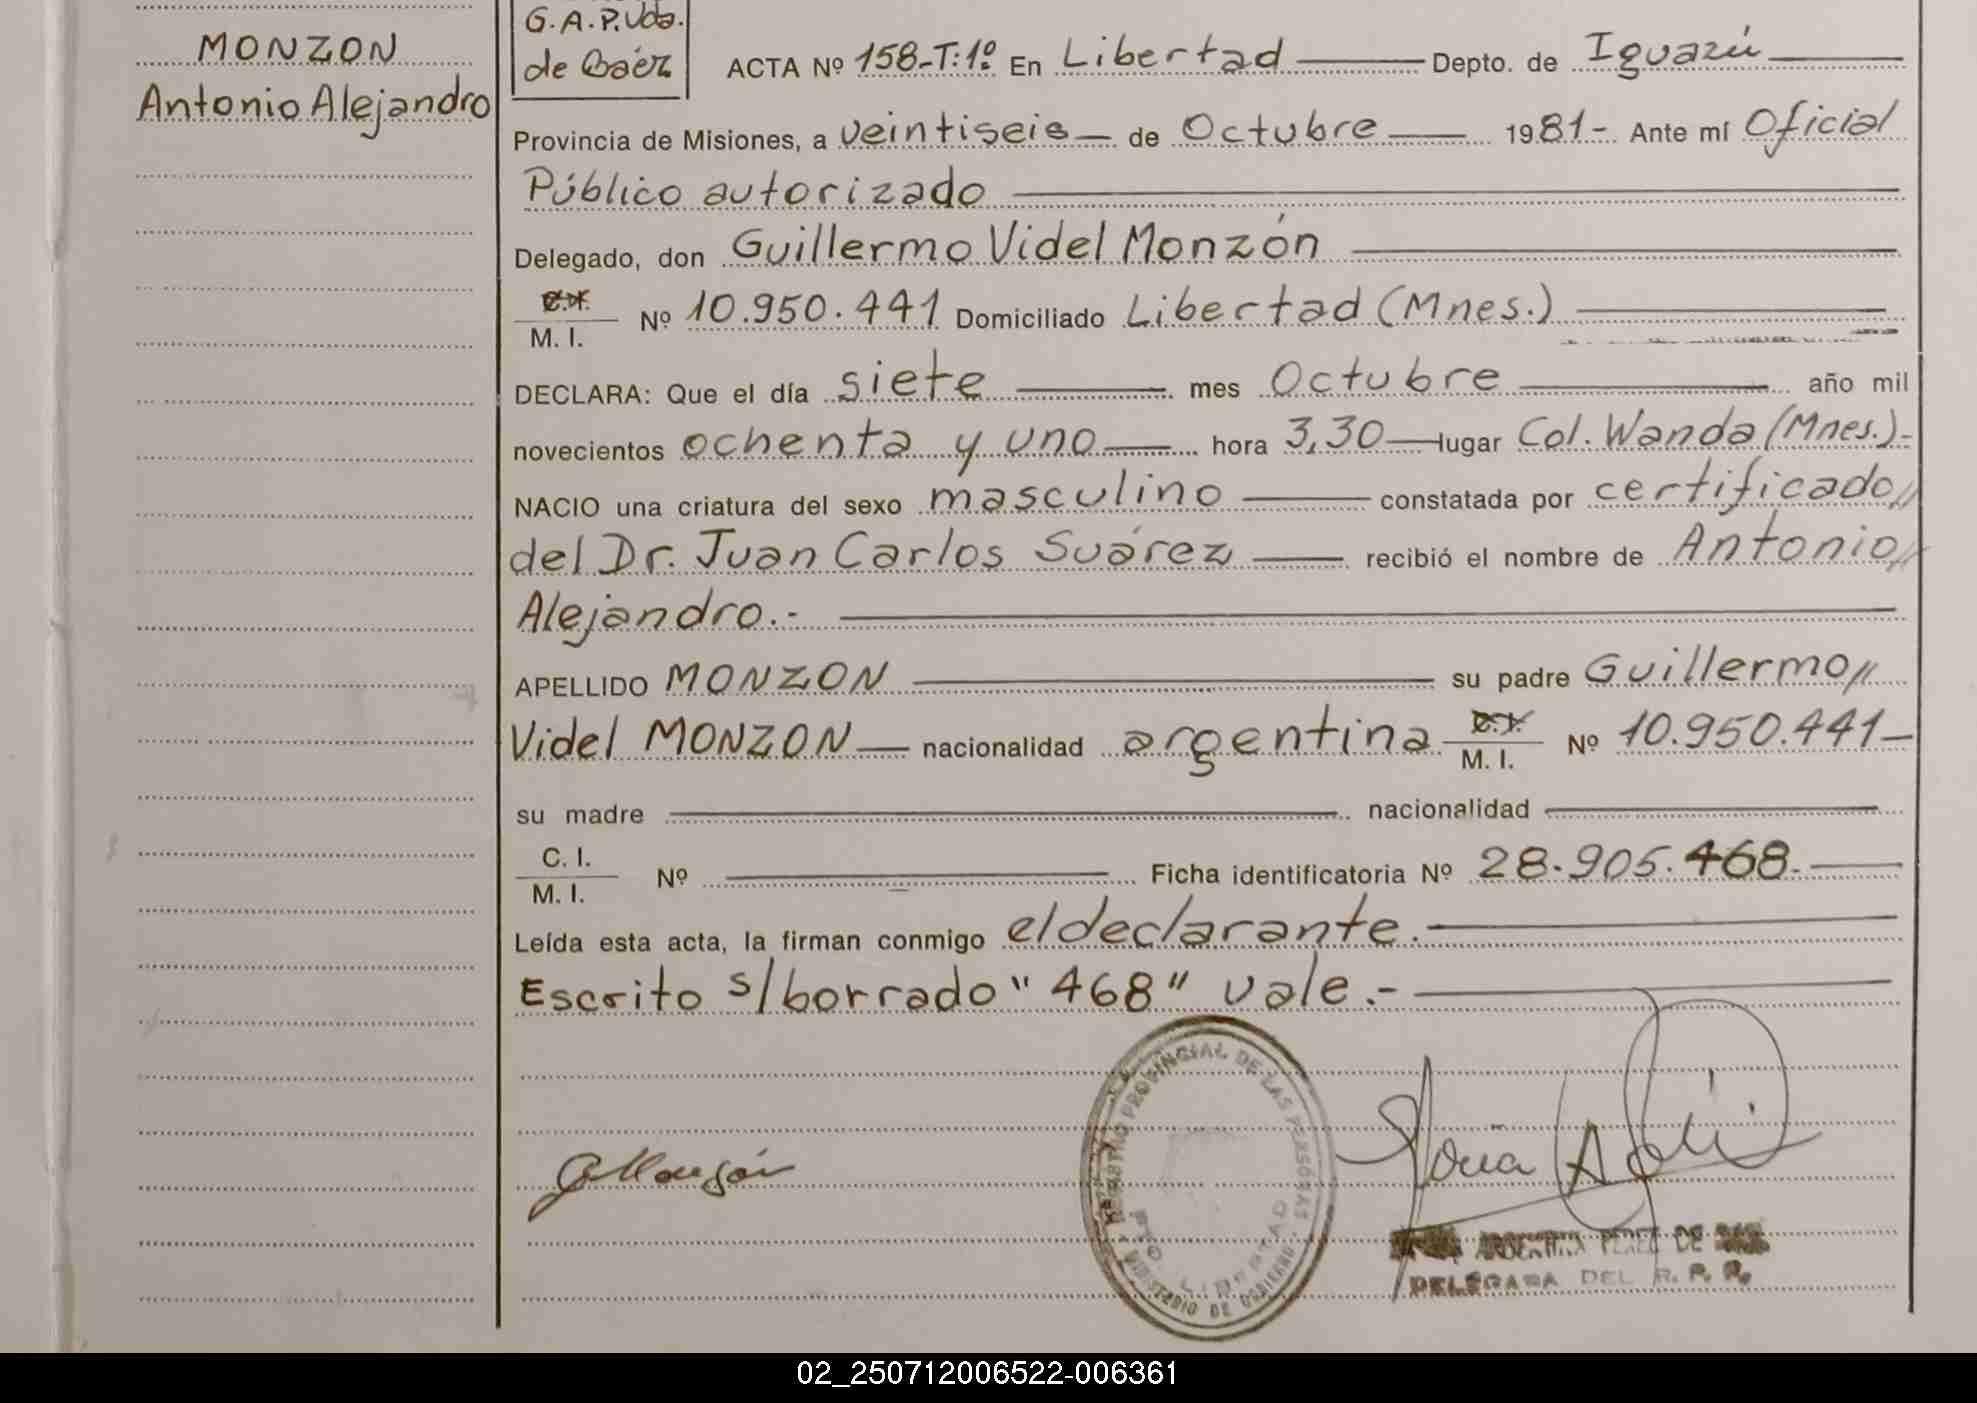 MONZON
Antonio Alejandro
G.A.P.Vda.
de Baéz
ACTA Nº 158-T:1º En Libertad Depto. de Iguazú
Provincia de Misiones, a veintiseis de Octubre 1981- Ante mí Oficial
Público autorizado
Delegado, don Guillermo Videl Monzón
C.I. M. I. Nº 10.950.441 Domiciliado Libertad (Mnes.)
DECLARA: Que el día siete mes Octubre año mil
novecientos ochenta y uno hora 3,30 lugar Col. Wanda (Mnes.)-
NACIO una criatura del sexo masculino constatada por certificado//
del Dr. Juan Carlos Suárez recibió el nombre de Antonio//
Alejandro.-
APELLIDO MONZON su padre Guillermo//
Videl MONZON nacionalidad argentina C.I. M. I. Nº 10.950.441-
su madre nacionalidad
C. I. M. I. Nº Ficha identificatoria Nº 28.905.468.-
Leída esta acta, la firman conmigo el declarante.-
Escrito s/borrado "468" vale.-
GMonzón
REGISTRO PROVINCIAL DE LAS PERSONAS
MINISTERIO DE GOBIERNO
LIBERTAD
ARGENTINA PEREZ DE
DELEGADA DEL R. P. P.
02_250712006522-006361